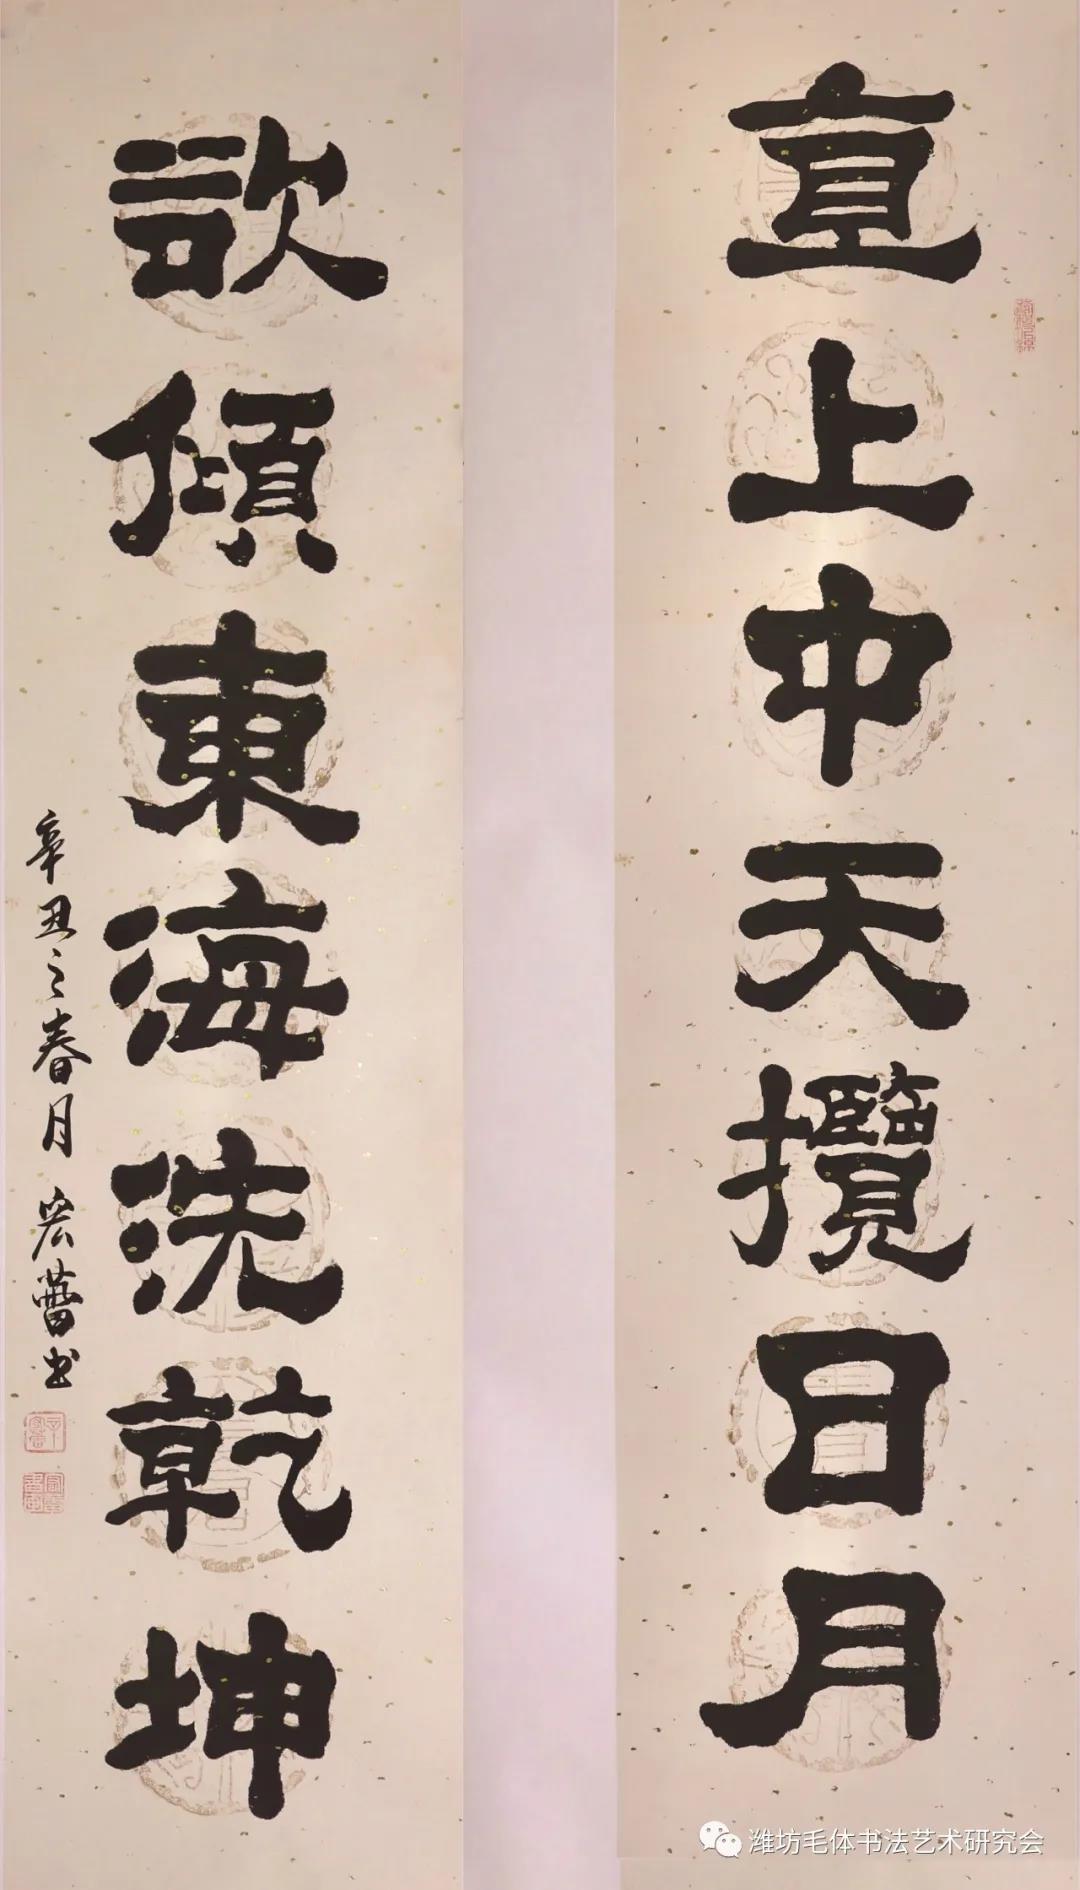 直上中天攬日月
欲傾東海洗乾坤
辛丑之春月 宏 书
潍坊毛体书法艺术研究会